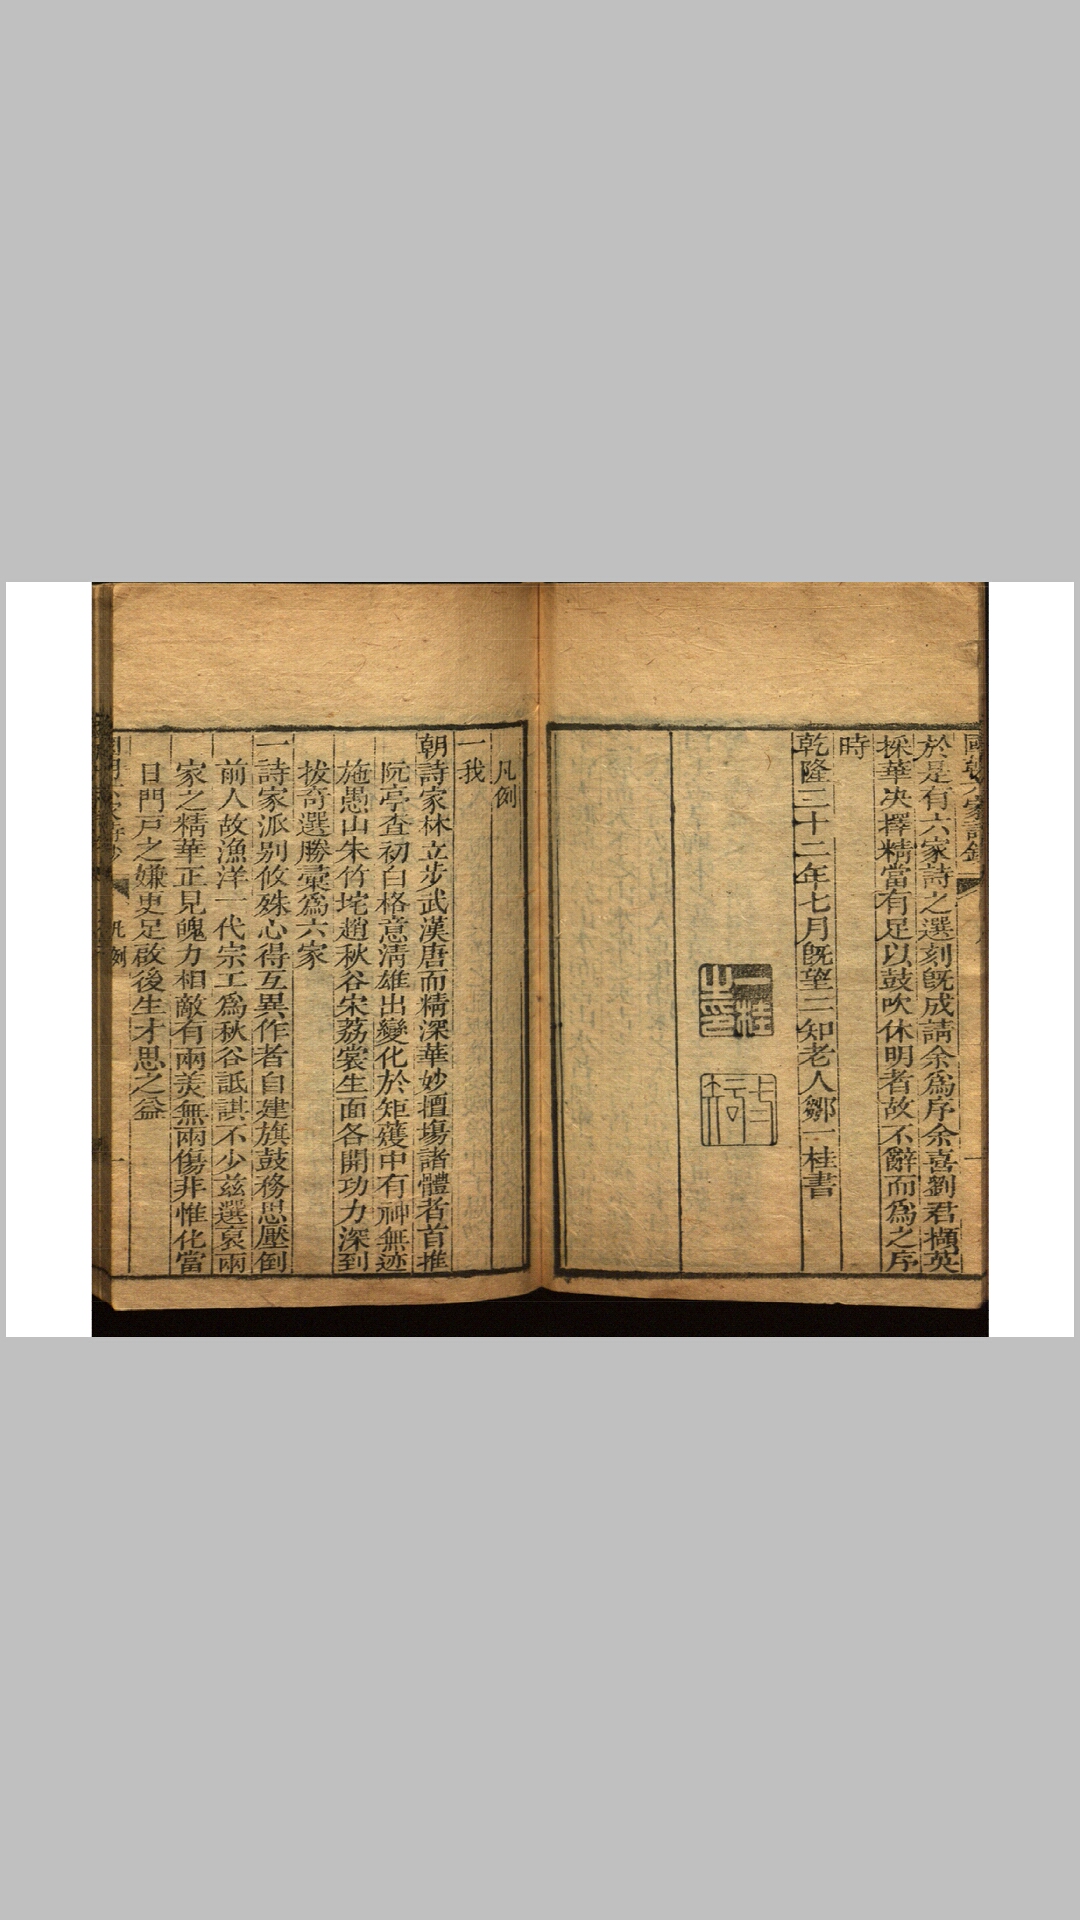 於是有六家詩之選刻旣成請余爲序余喜劉君擷英
採華決擇精當有足以鼓吹休明者故不辭而爲之序
時
乾隆三十二年七月旣望二知老人鄒一桂書
一桂之印
凡例
一我
朝詩家林立步武漢唐而精深華妙擅塲諸體者首推
阮亭查初白格意淸雄出變化於矩矱中有神無迹
施愚山朱竹垞趙秋谷宋荔裳生面各開功力深到
拔奇選勝彙爲六家
一詩家派别攸殊心得互異作者自建旗鼓務思壓倒
前人故漁洋一代宗工爲秋谷詆諆不少兹選裒兩
家之精華正見魄力相敵有兩美無兩傷非惟化當
日門戸之嫌更足啟後生才思之益
凡例
一